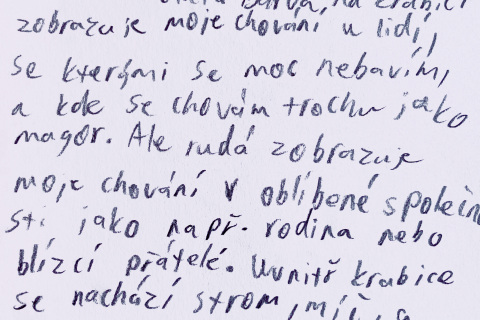 barva, na krabici
zobrazuje moje chování u lidí,
se kterými se moc nebavím,
a kde se chovám trochu jako
magor. Ale rudá zobrazuje
moje chování v oblíbené společno
sti jako např. rodina nebo
blízcí přátelé. Uvnitř krabice
se nachází strom, míč, a